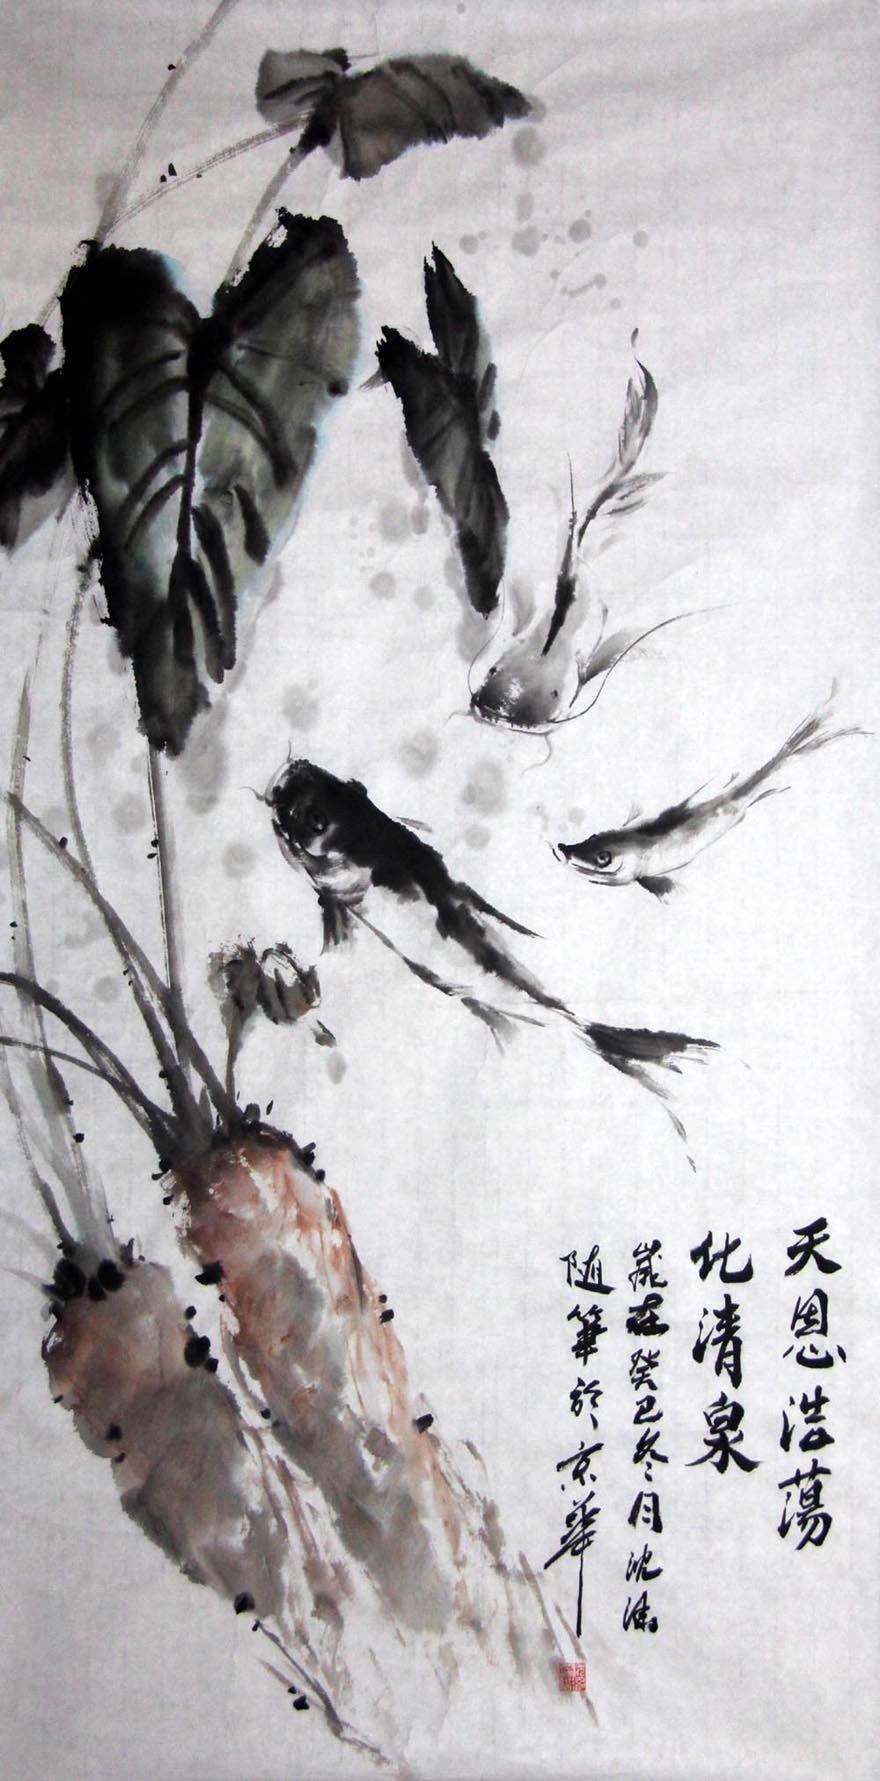 天恩浩蕩
化清泉
歲在癸巳冬月沈涛
随筆於京華